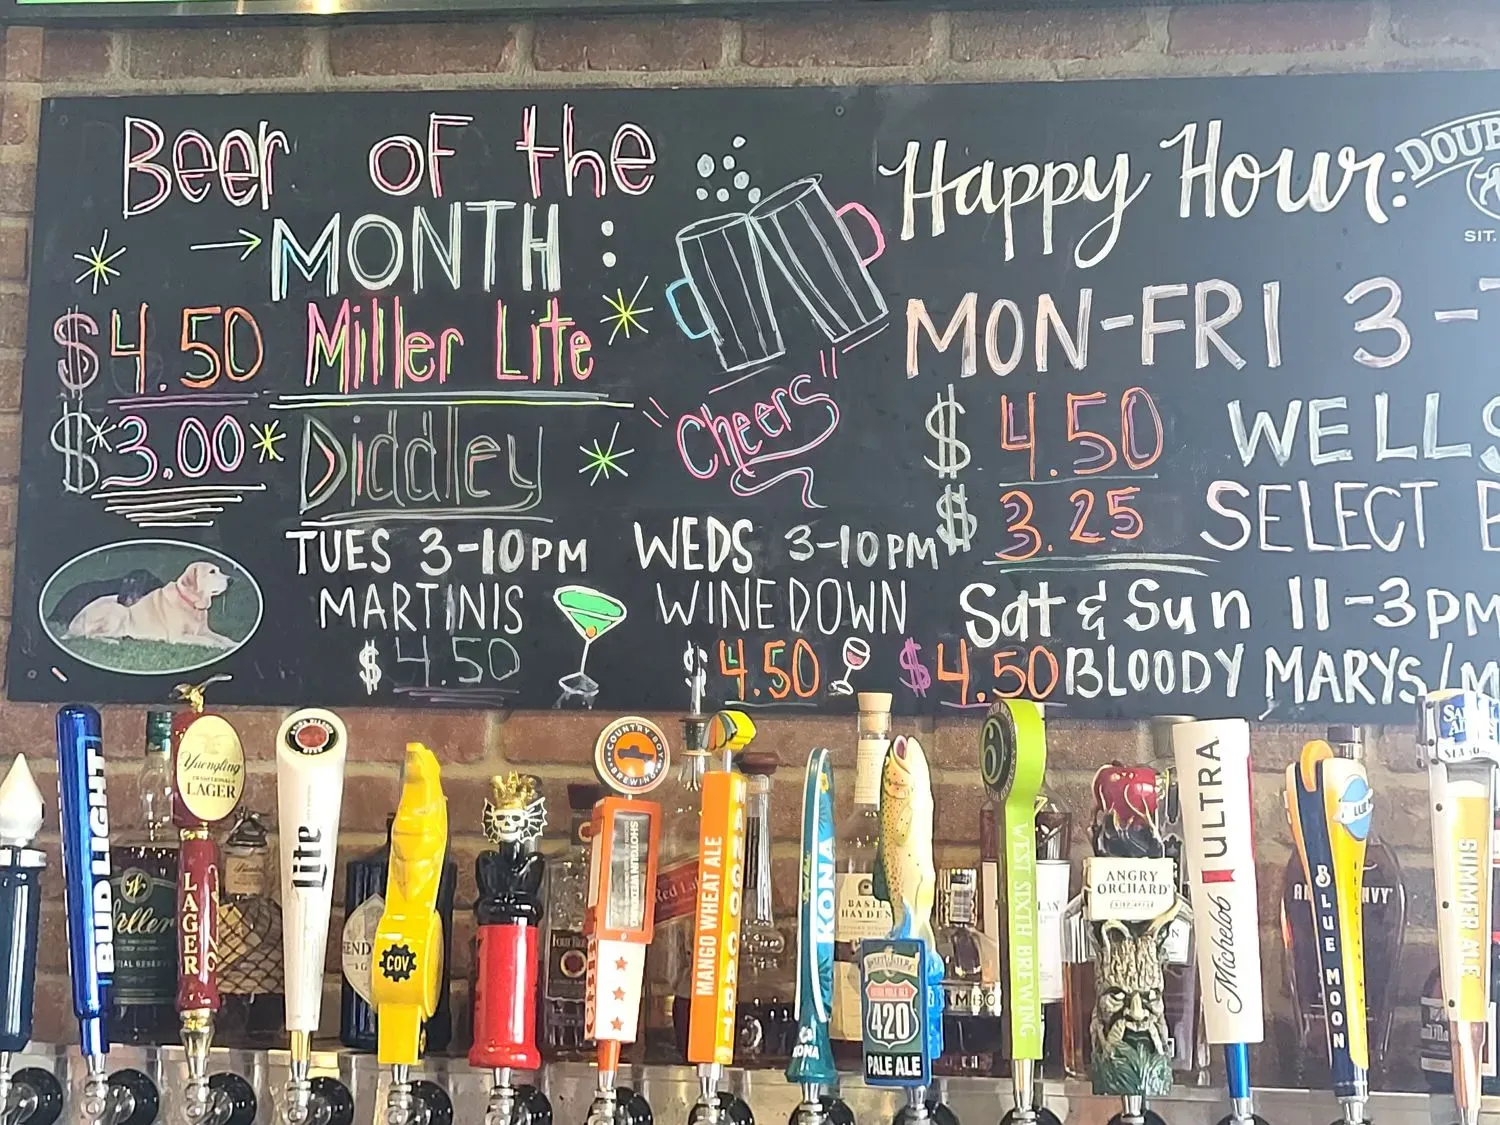 Beer of the
→ MONTH :
$4.50 Miller Lite
$3.00 Diddley
"Cheers"
TUES 3-10PM
MARTINIS
$4.50
WEDS 3-10PM
WINEDOWN
$4.50
Happy Hour:
DOUB
SIT.
MON-FRI 3-
$4.50 WELLS
$3.25 SELECT
Sat & Sun 11-3pm
$4.50 BLOODY MARYS/M
BUD LIGHT
Yuengling
TRADITIONAL
LAGER
LAGER
Lite
COV
COUNTRY BOY
BREWING
MANGO WHEAT ALE
MANGO CART
KONA
KONA
SweetWater
420
PALE ALE
BASIL
HAYDEN
6
WEST SIXTH BREWING
ANGRY
ORCHARD
Michelob ULTRA
BLUE MOON
SUMMER ALE